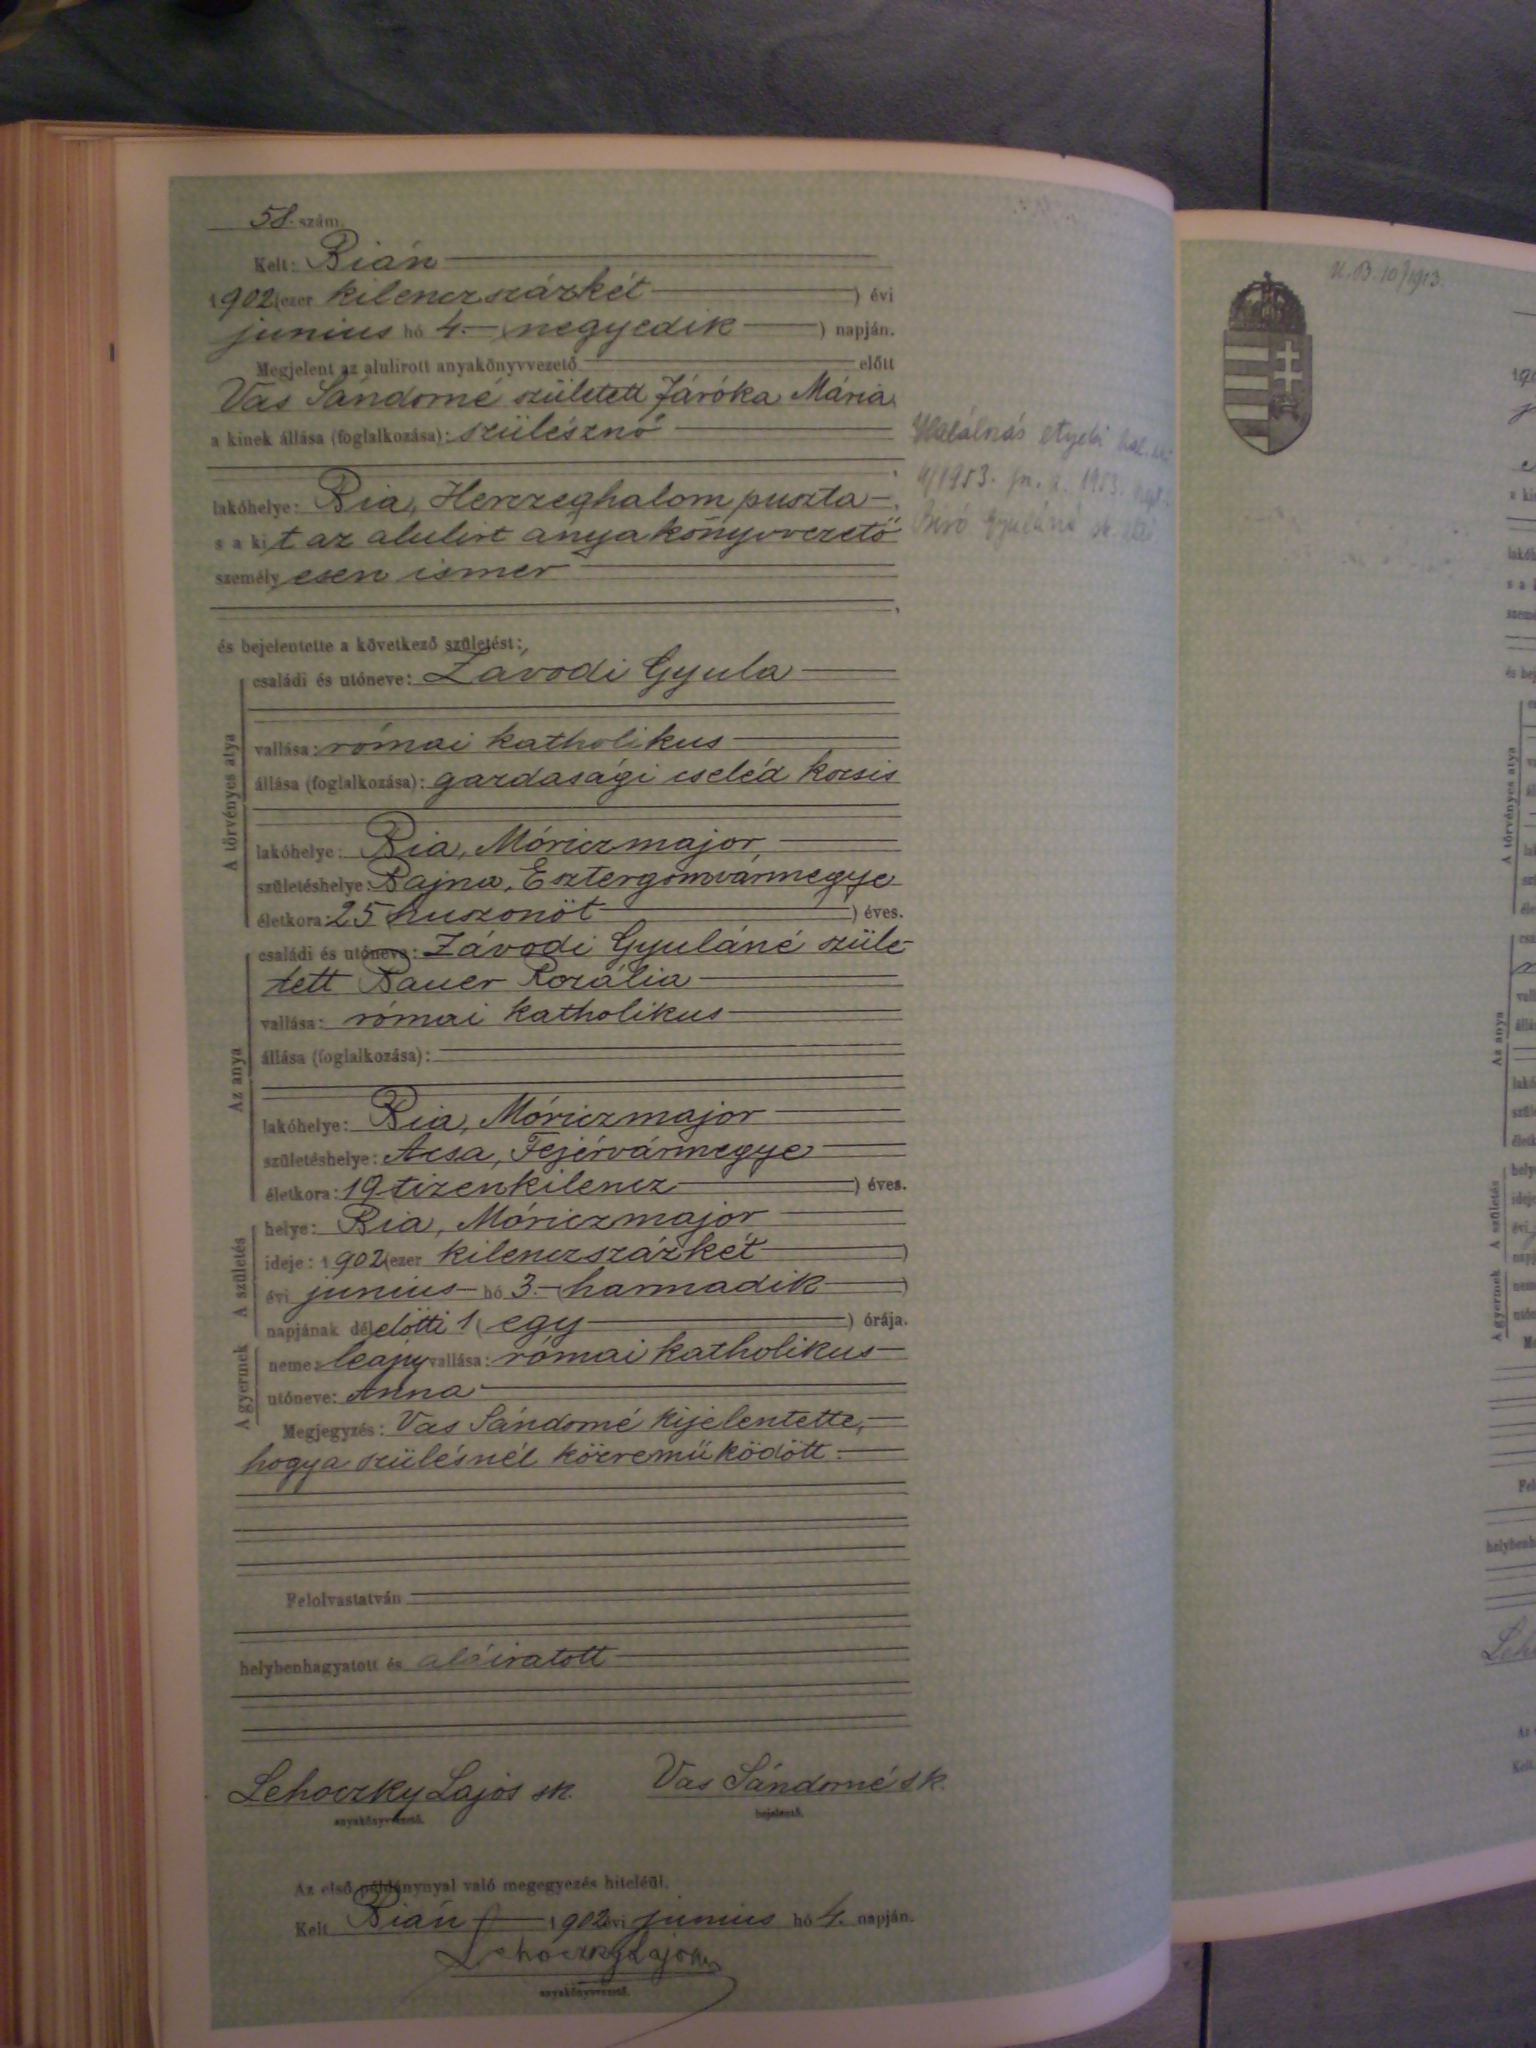 58. szám.
Kelt: Bián
1902 (ezer kilenczszázkét ) évi
junius hó 4. (negyedik ) napján.
Megjelent az alulirott anyakönyvvezető előtt
Vas Sándorné született Járóka Mária
a kinek állása (foglalkozása): szülésznő
lakóhelye: Bia, Herczeghalom puszta
s a kit az alulirt anyakönyvvezető
személyesen ismer
és bejelentette a következő születést:
A törvényes atya
családi és utóneve: Závodi Gyula
vallása: római katholikus
állása (foglalkozása): gazdasági cseléd kocsis
lakóhelye: Bia, Móriczmajor,
születéshelye: Bajna, Esztergomvármegye
életkora: 25 (huszonöt ) éves.
Az anya
családi és utóneve: Závodi Gyuláné szüle-
tett Bauer Rozália
vallása: római katholikus
állása (foglalkozása):
lakóhelye: Bia, Móriczmajor
születéshelye: Acsa, Fejérvármegye
életkora: 19 (tizenkilencz ) éves.
A születés
helye: Bia, Móriczmajor
ideje: 1902 (ezer kilenczszázkét )
évi junius hó 3. (harmadik )
napjának délelőtti 1 (egy ) órája.
A gyermek
neme: leány vallása: római katholikus
utóneve: Anna
Megjegyzés: Vas Sándorné kijelentette,
hogy a szülésnél közreműködött.
Felolvastatván
helybenhagyatott és aláiratott
Lehoczky Lajos sk. Vas Sándorné s.k.
anyakönyvvezető. bejelentő.
Az első példánynyal való megegyezés hiteléül.
Kelt Bián 1902 évi junius hó 4. napján.
Lehoczky Lajos
anyakönyvvezető.
Halálozás etyeki
1953. 1953.
Biró Gyuláné
U. B. 10/1913.